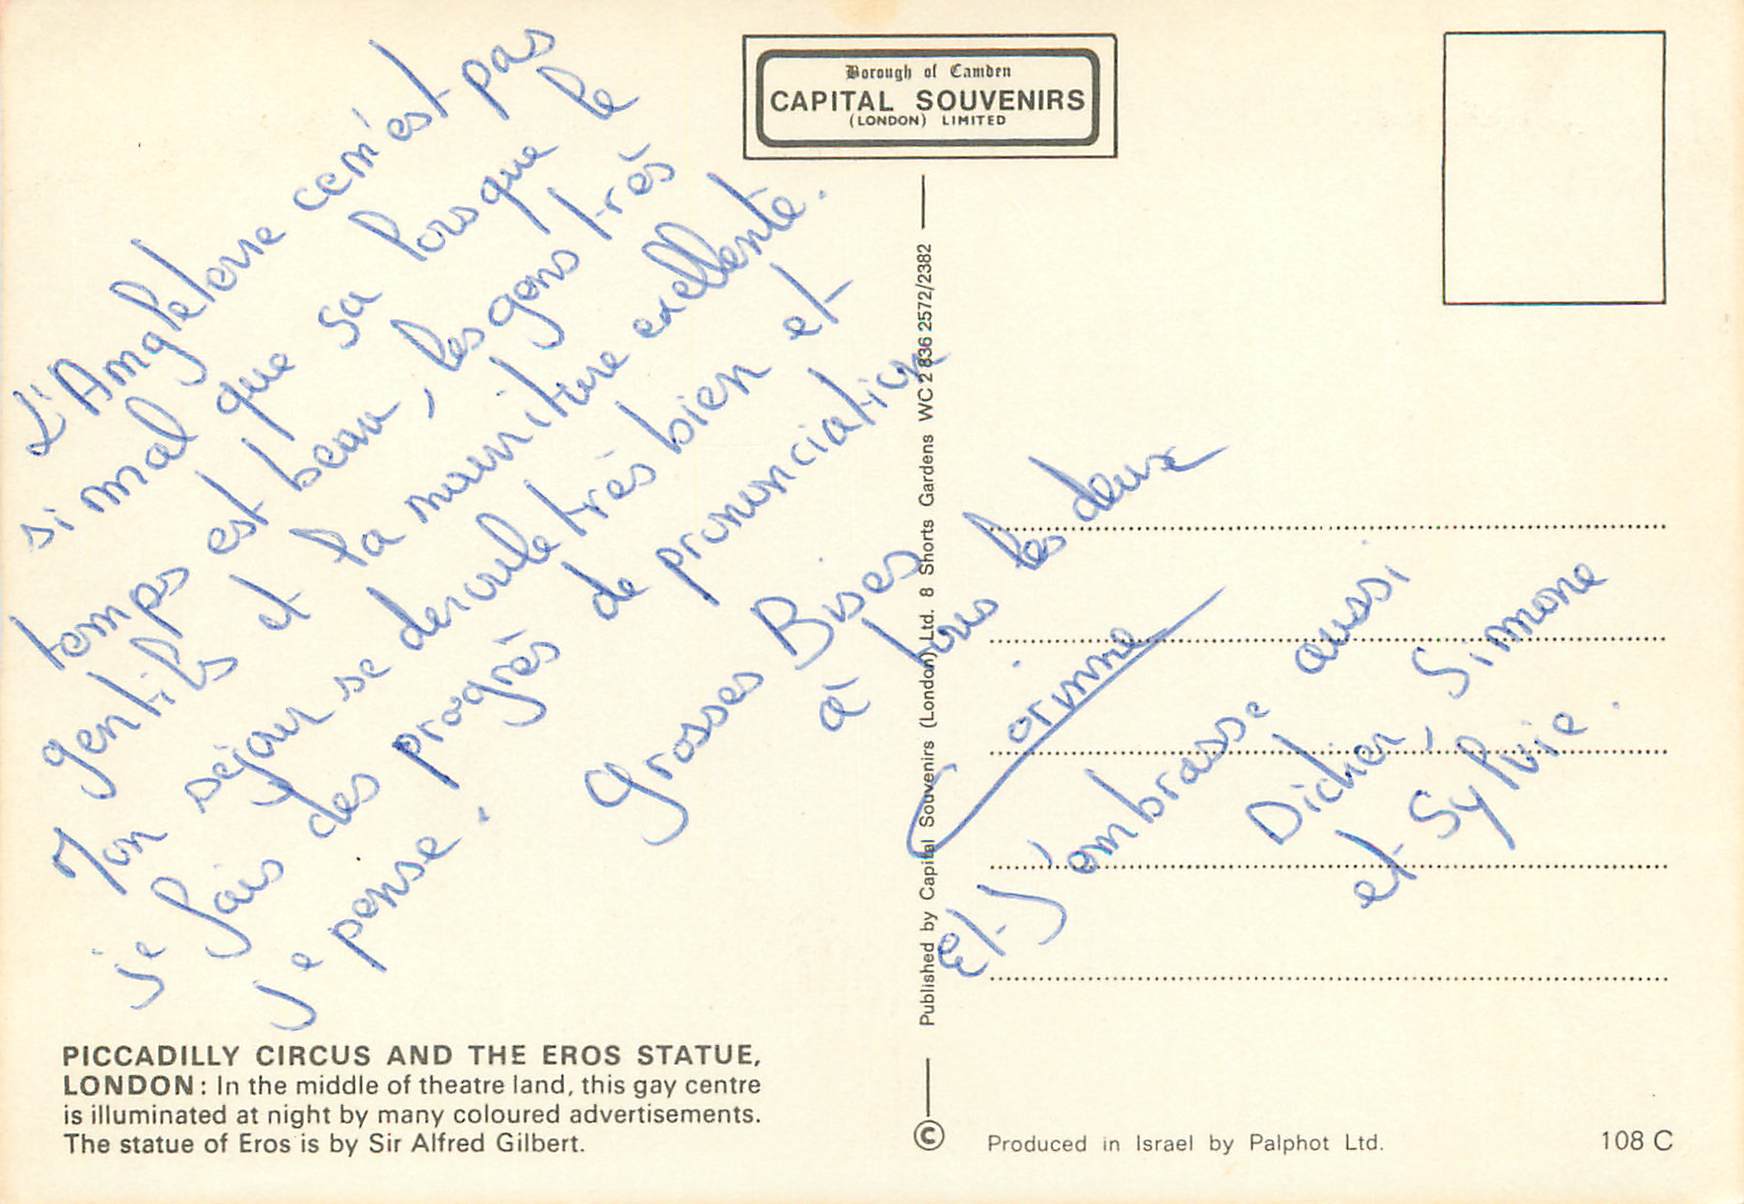 Borough of Camden
CAPITAL SOUVENIRS
(LONDON) LIMITED
L'Angleterre ce n'est pas
si mal que sa lorsque le
temps est beau, les gens très
gentils et la nourriture exellente.
Mon séjour se deroule très bien et
je fais des progrès de pronunciation
je pense.
Grosses Bises
à tous les deux
Corinne
Et J'embrasse aussi
Didier, Simone
et Sylvie.
Published by Capital Souvenirs (London) Ltd. 8 Shorts Gardens WC 2 836 2572/2382
PICCADILLY CIRCUS AND THE EROS STATUE,
LONDON: In the middle of theatre land, this gay centre
is illuminated at night by many coloured advertisements.
The statue of Eros is by Sir Alfred Gilbert.
© Produced in Israel by Palphot Ltd. 108 C